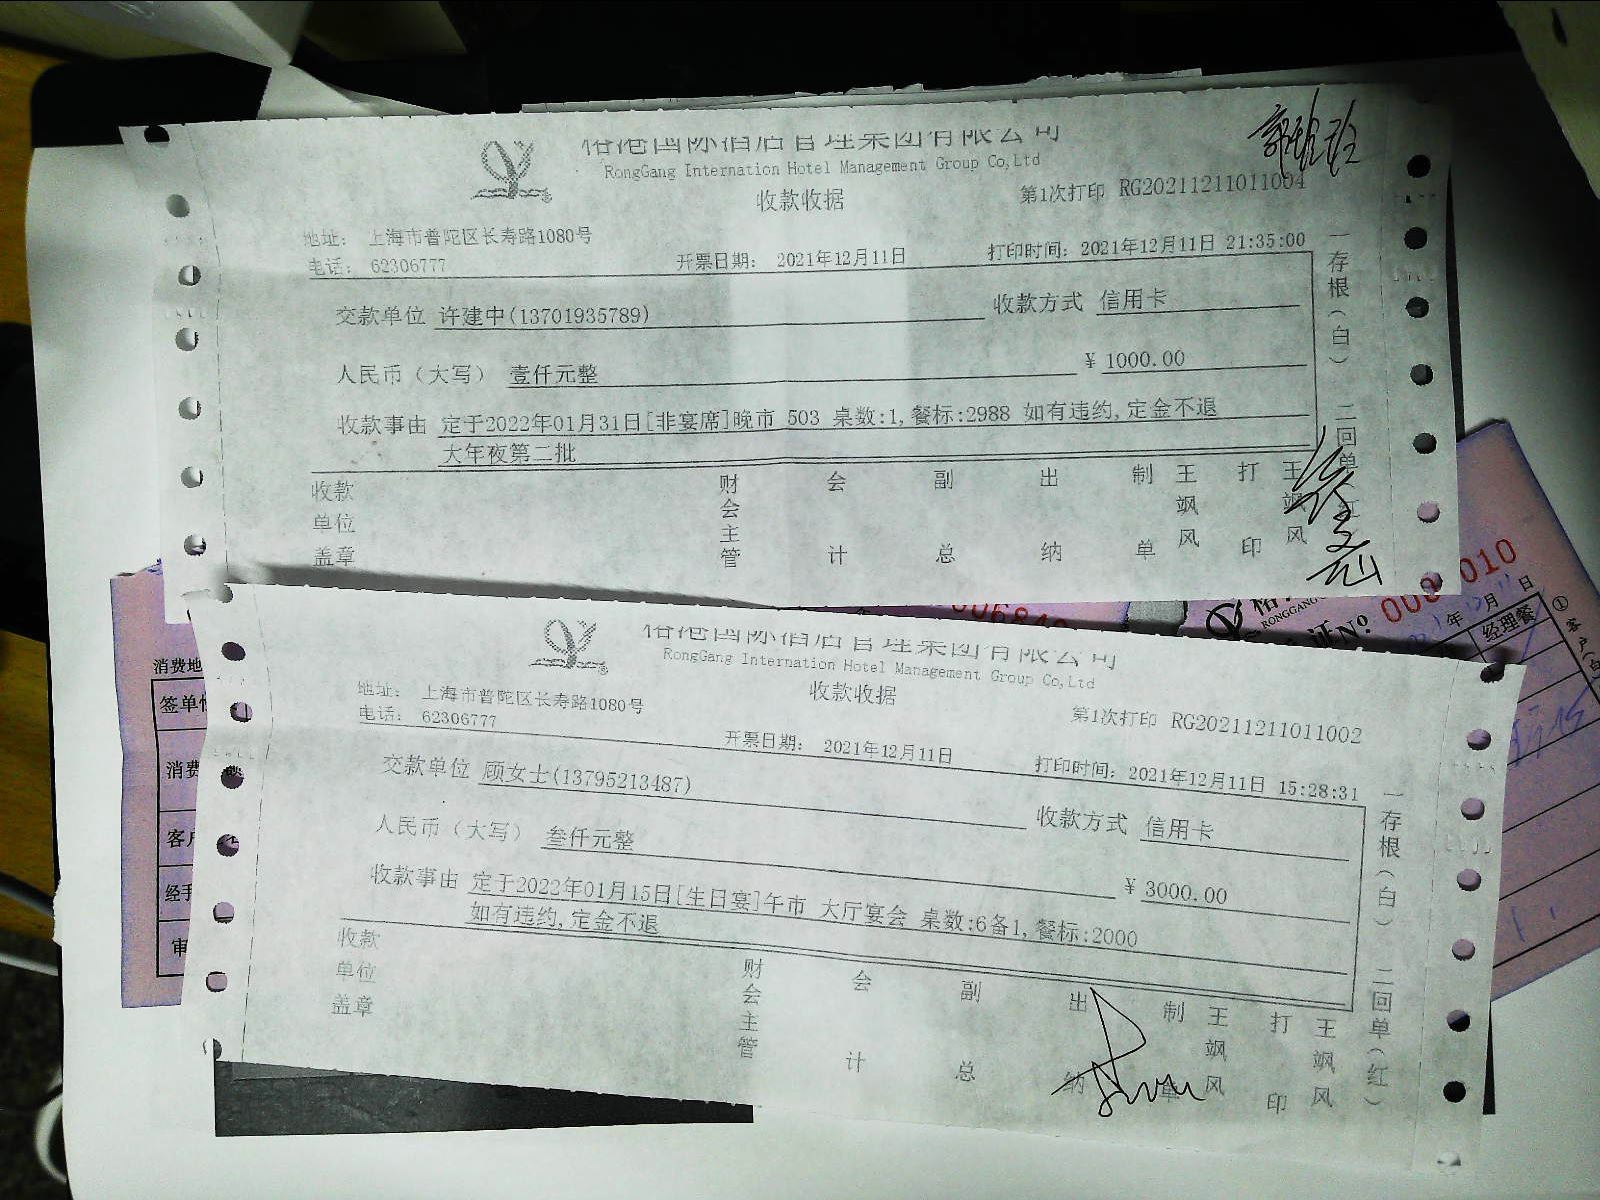 裕港国际酒店管理集团有限公司
RongGang Internation Hotel Management Group Co,Ltd
收款收据
第1次打印 RG20211211011004
地址: 上海市普陀区长寿路1080号
电话: 62306777
开票日期: 2021年12月11日
打印时间: 2021年12月11日 21:35:00
交款单位 许建中(13701935789)
收款方式 信用卡
人民币(大写) 壹仟元整
¥ 1000.00
收款事由 定于2022年01月31日[非宴席]晚市 503 桌数:1,餐标:2988 如有违约,定金不退
大年夜第二批
收款单位盖章
财会主管
会计
副总
出纳
制单 王飒风
打印 王飒风
一存根(白) 二回单(红
006849
000 010
RONGGANG
证No
年 月 日
经理餐
①客户(白
裕港国际酒店管理集团有限公司
RongGang Internation Hotel Management Group Co,Ltd
收款收据
第1次打印 RG20211211011002
地址: 上海市普陀区长寿路1080号
电话: 62306777
开票日期: 2021年12月11日
打印时间: 2021年12月11日 15:28:31
交款单位 顾女士(13795213487)
收款方式 信用卡
人民币(大写) 叁仟元整
¥ 3000.00
收款事由 定于2022年01月15日[生日宴]午市 大厅宴会 桌数:6备1,餐标:2000
如有违约,定金不退
收款单位盖章
财会主管
会计
副总
出纳
制单 王飒风
打印 王飒风
一存根(白) 二回单(红)
消费地
签单
消费
客户
经手
审